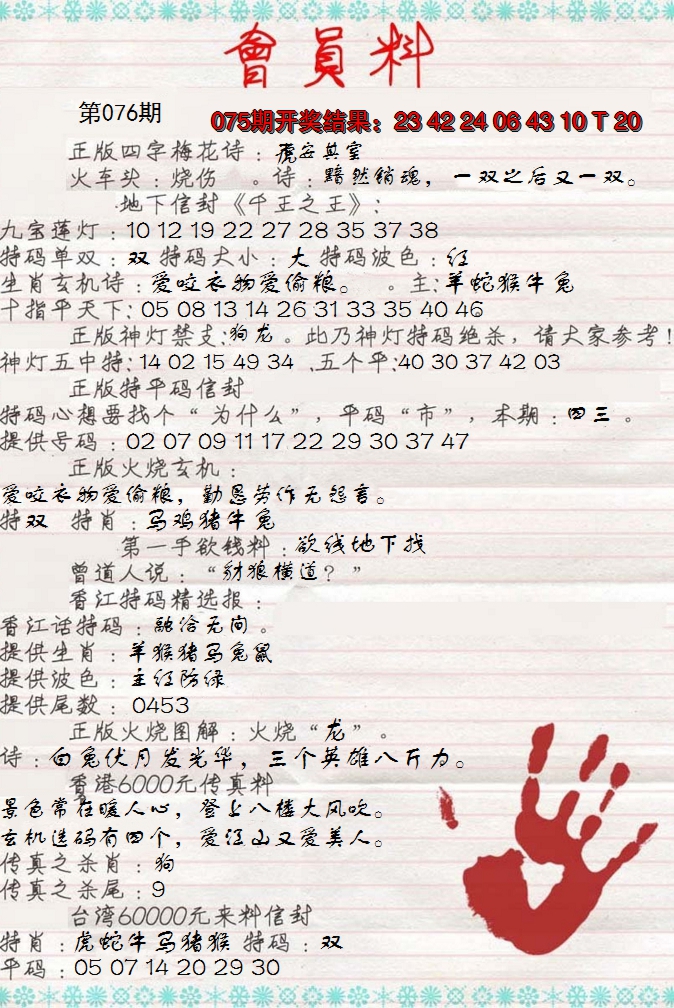 會員料
第076期
075期开奖结果：23 42 24 06 43 10 T 20
正版四字梅花诗：虎安其室
火车头：烧伤 。诗：黯然销魂，一双之后又一双。
地下信封《千王之王》：
九宝莲灯：10 12 19 22 27 28 35 37 38
特码单双：双 特码大小：大 特码波色：红
生肖玄机诗：爱咬衣物爱偷粮。 。主：羊蛇猴牛兔
十指平天下：05 08 13 14 26 31 33 35 40 46
正版神灯禁支：狗龙。此乃神灯特码绝杀，请大家参考！
神灯五中特：14 02 15 49 34 .五个平：40 30 37 42 03
正版特平码信封
特码心想要找个“为什么”，平码“市”，本期：四三。
提供号码：02 07 09 11 17 22 29 30 37 47
正版火烧玄机：
爱咬衣物爱偷粮，勤恳劳作无怨言。
特双 特肖：马鸡猪牛兔
第一手欲钱料：欲钱地下找
曾道人说：“豺狼横道？”
香江特码精选报：
香江话特码：融洽无间。
提供生肖：羊猴猪马兔鼠
提供波色：主红防绿
提供尾数：0453
正版火烧图解：火烧“龙”。
诗：白兔伏月发光华，三个英雄八斤力。
香港6000元传真料
景色常在暖人心，登上八楼大风吹。
玄机选码有四个，爱江山又爱美人。
传真之杀肖：狗
传真之杀尾：9
台湾60000元来料信封
特肖：虎蛇牛马猪猴 特码：双
平码：05 07 14 20 29 30